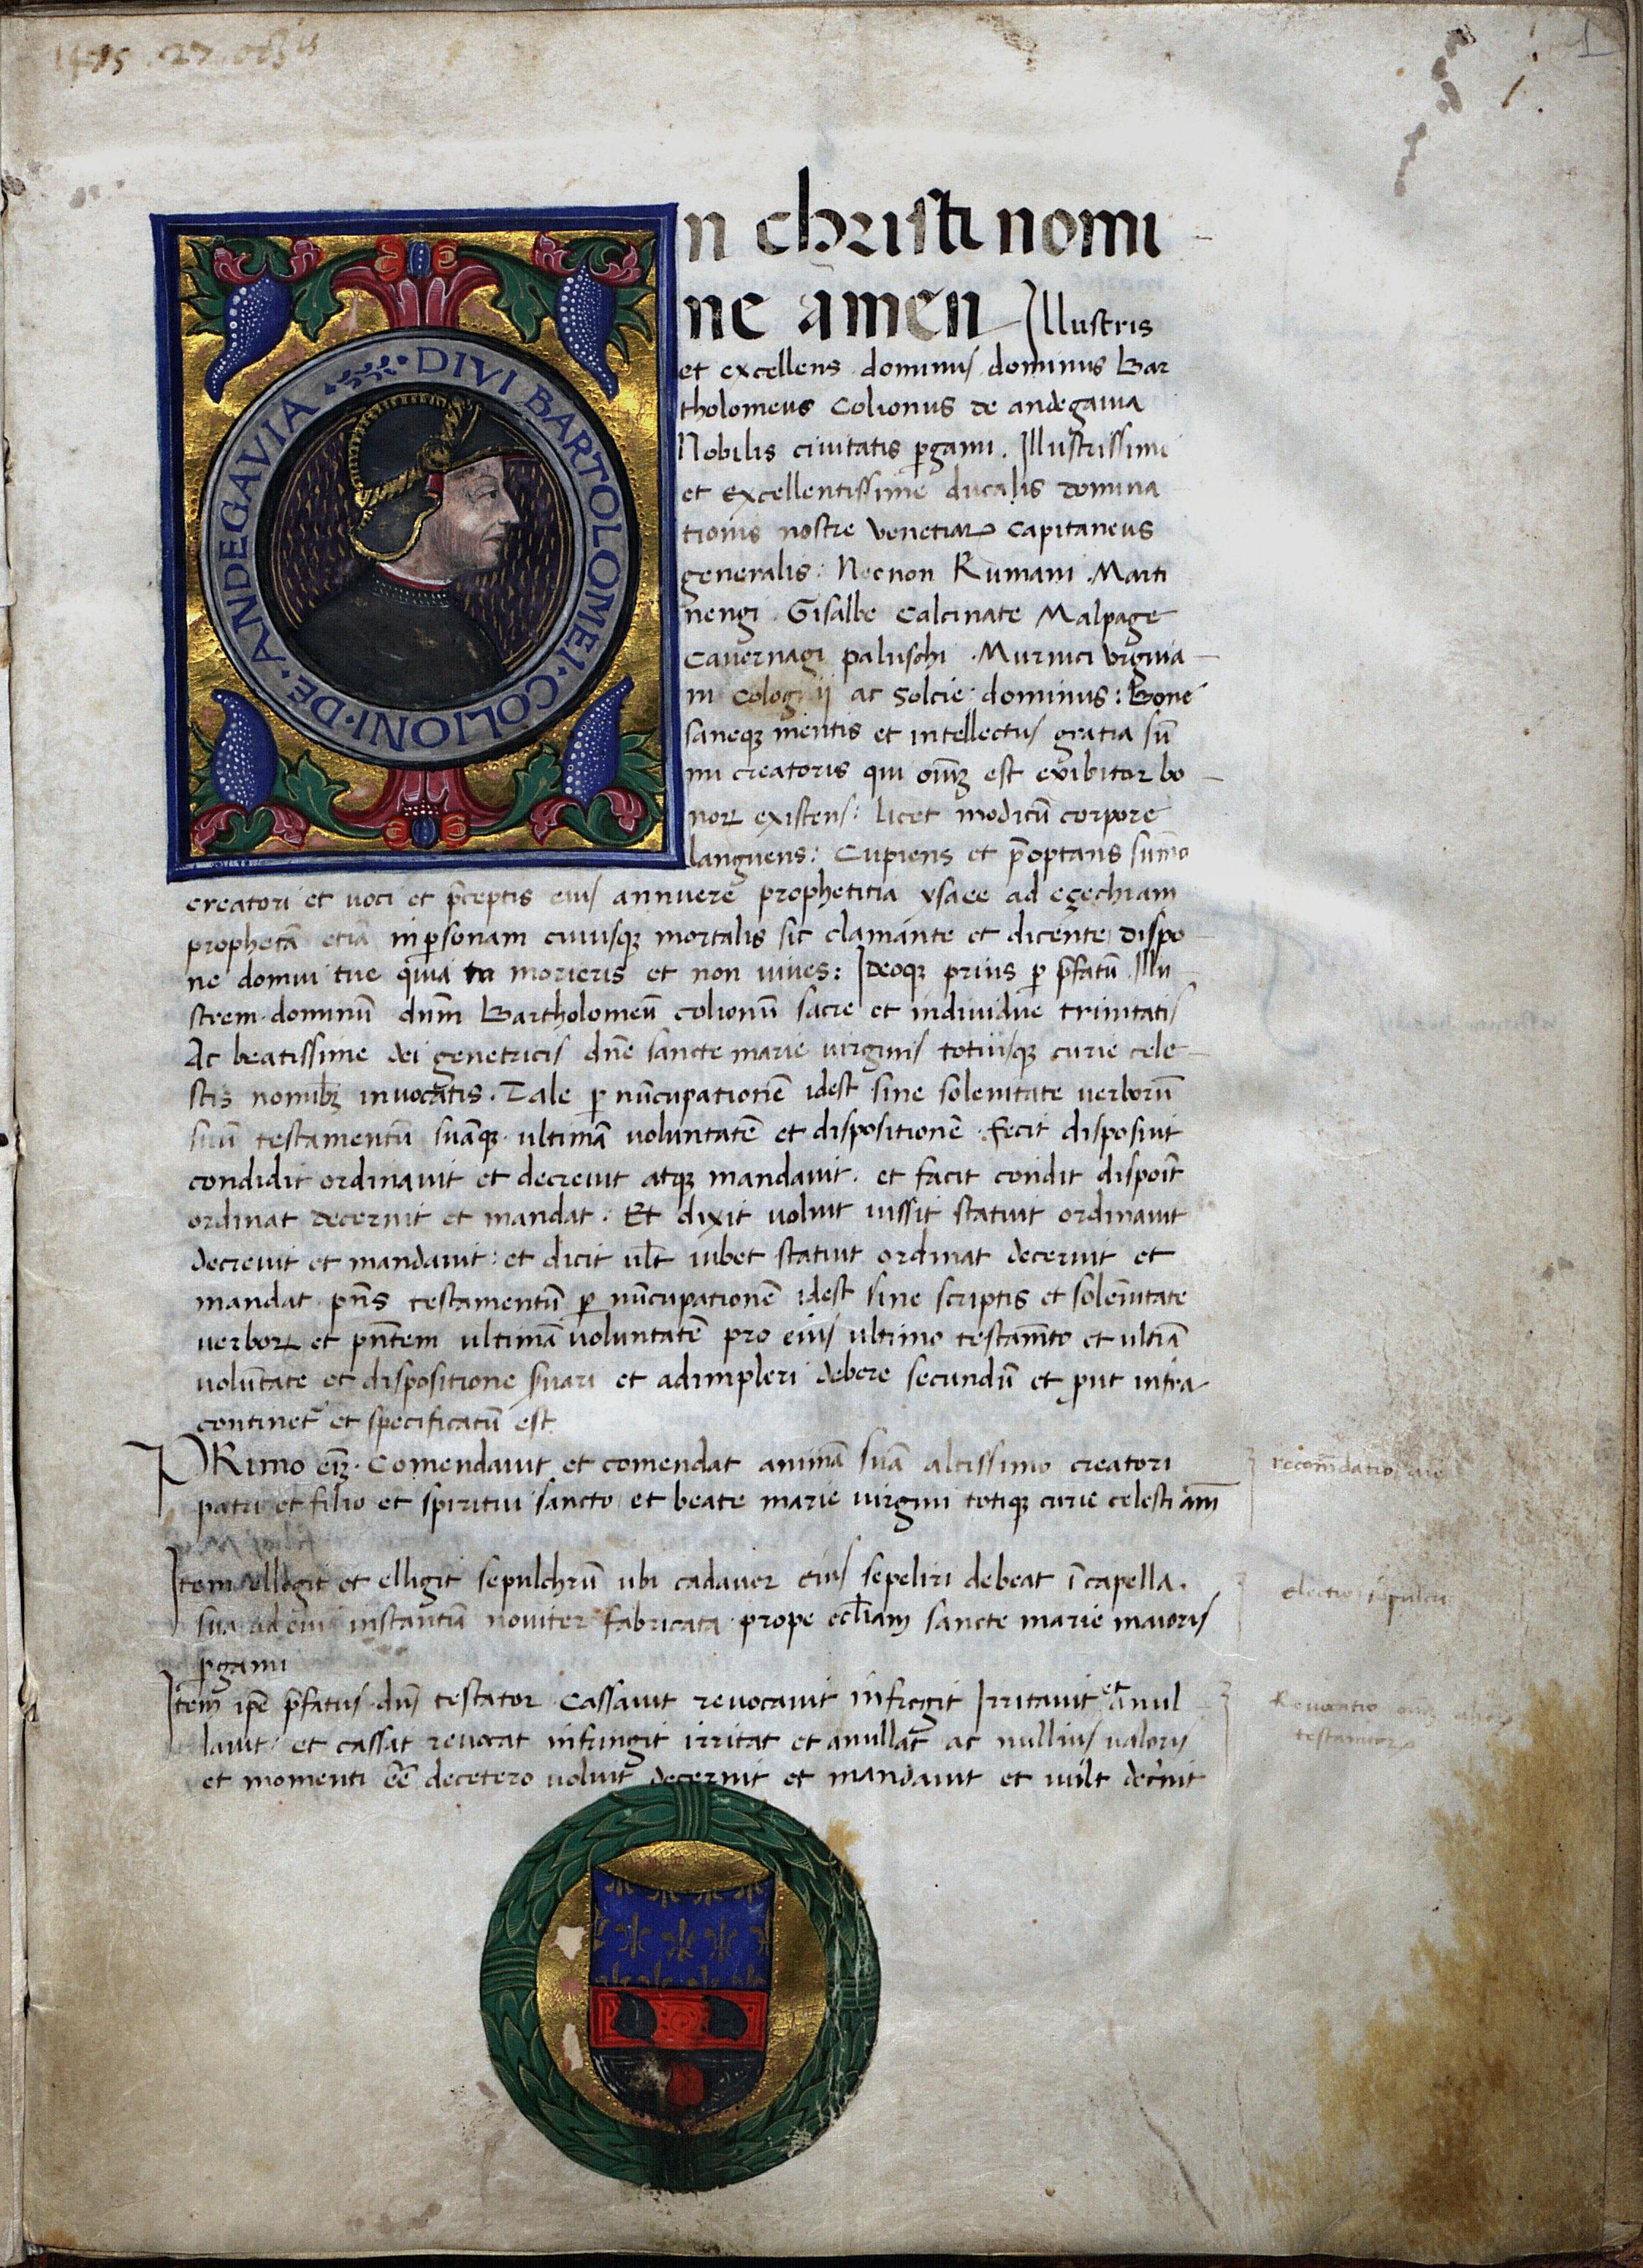 1475 . 27 .
1
DIVI BARTOLOMEI · COLIONI · DE · ANDEGAVIA
n christi nomi
ne amen Illustris
et excellens dominus dominus Bar
tholomeus Colionus de andegauia
Nobilis ciuitatis ꝑgami . Illustrissimi
et excellentissime ducalis domina
tionis nostre venetiaꝝ capitaneus
generalis : Necnon Rumani . Marti
nengi . Gisalbe Calcinate Malpage
Cauernagi paluschi . Murnici vrgnia
ni Cologni ac Solcie : dominus : Bone
saneqꝫ mentis et intellectus gratia sū
mi creatoris qui oīuꝫ est exibitor bo
noꝝ existens : licet modicū corpore
languens : Cupiens et p̄optans sūmo
creatori et uoci et p̄ceptis eius annuere prophetitia ysaee ad egechiam
prophetā etiā in ꝑsonam cuiusqꝫ mortalis sic clamante et dicente dispo
ne domui tue quia tu morieris et non uiues : Ideoqꝫ prius ꝑ p̄fatū Illu
strem dominū dn̄m Bartholomeū colionū sacre et indiuidue trinitatis
Ac beatissime dei genetricis dn̄e sancte marie uirginis totiusqꝫ curie cele
stis nominibꝫ inuocatis . Tale ꝑ nūcupationē idest sine solenitate uerborū
suū testamentū suāqꝫ ultimā uoluntatē et dispositionē fecit disposuit
condidit ordinauit et decreuit atqꝫ mandauit . et facit condit disponit
ordinat decernit et mandat . Et dixit uoluit iussit statuit ordinauit
decreuit et mandauit : et dicit ult iubet statuit ordinat decernit et
mandat pn̄s testamentū ꝑ nūcupationē idest sine scriptis et solēnitate
uerboꝝ et pn̄tem ultimā uoluntatē pro eius ultimo testam̄to et ultīa
uolūtate et dispositione suari et adimpleri debere secundū et put infra
continet̄ et specificatū est
PRimo eīꝫ . Comendauit et comendat animā suā altissimo creatori
patri et filio et spiritui sancto et beate marie uirgini totiqꝫ curie celesti am̄
recom̄datio aīe
Item ellegit et elligit sepulchrū ubi cadauer eius sepeliri debeat ī capella .
sua ad eius instantiā nouiter fabricata prope ecl̄iam sancte marie maioris
ꝑgami
electio sepulcri
Item ipē p̄fatus dn̄s testator cassauit reuocauit infregit Irritauit et anul
lauit . et cassat reuocat infringit irritat et anullat ac nullius ualoris
et momenti eē̄ decetero uoluit decernit et mandauit et uult dec̄nit
Reuocatio
testamentoꝝ